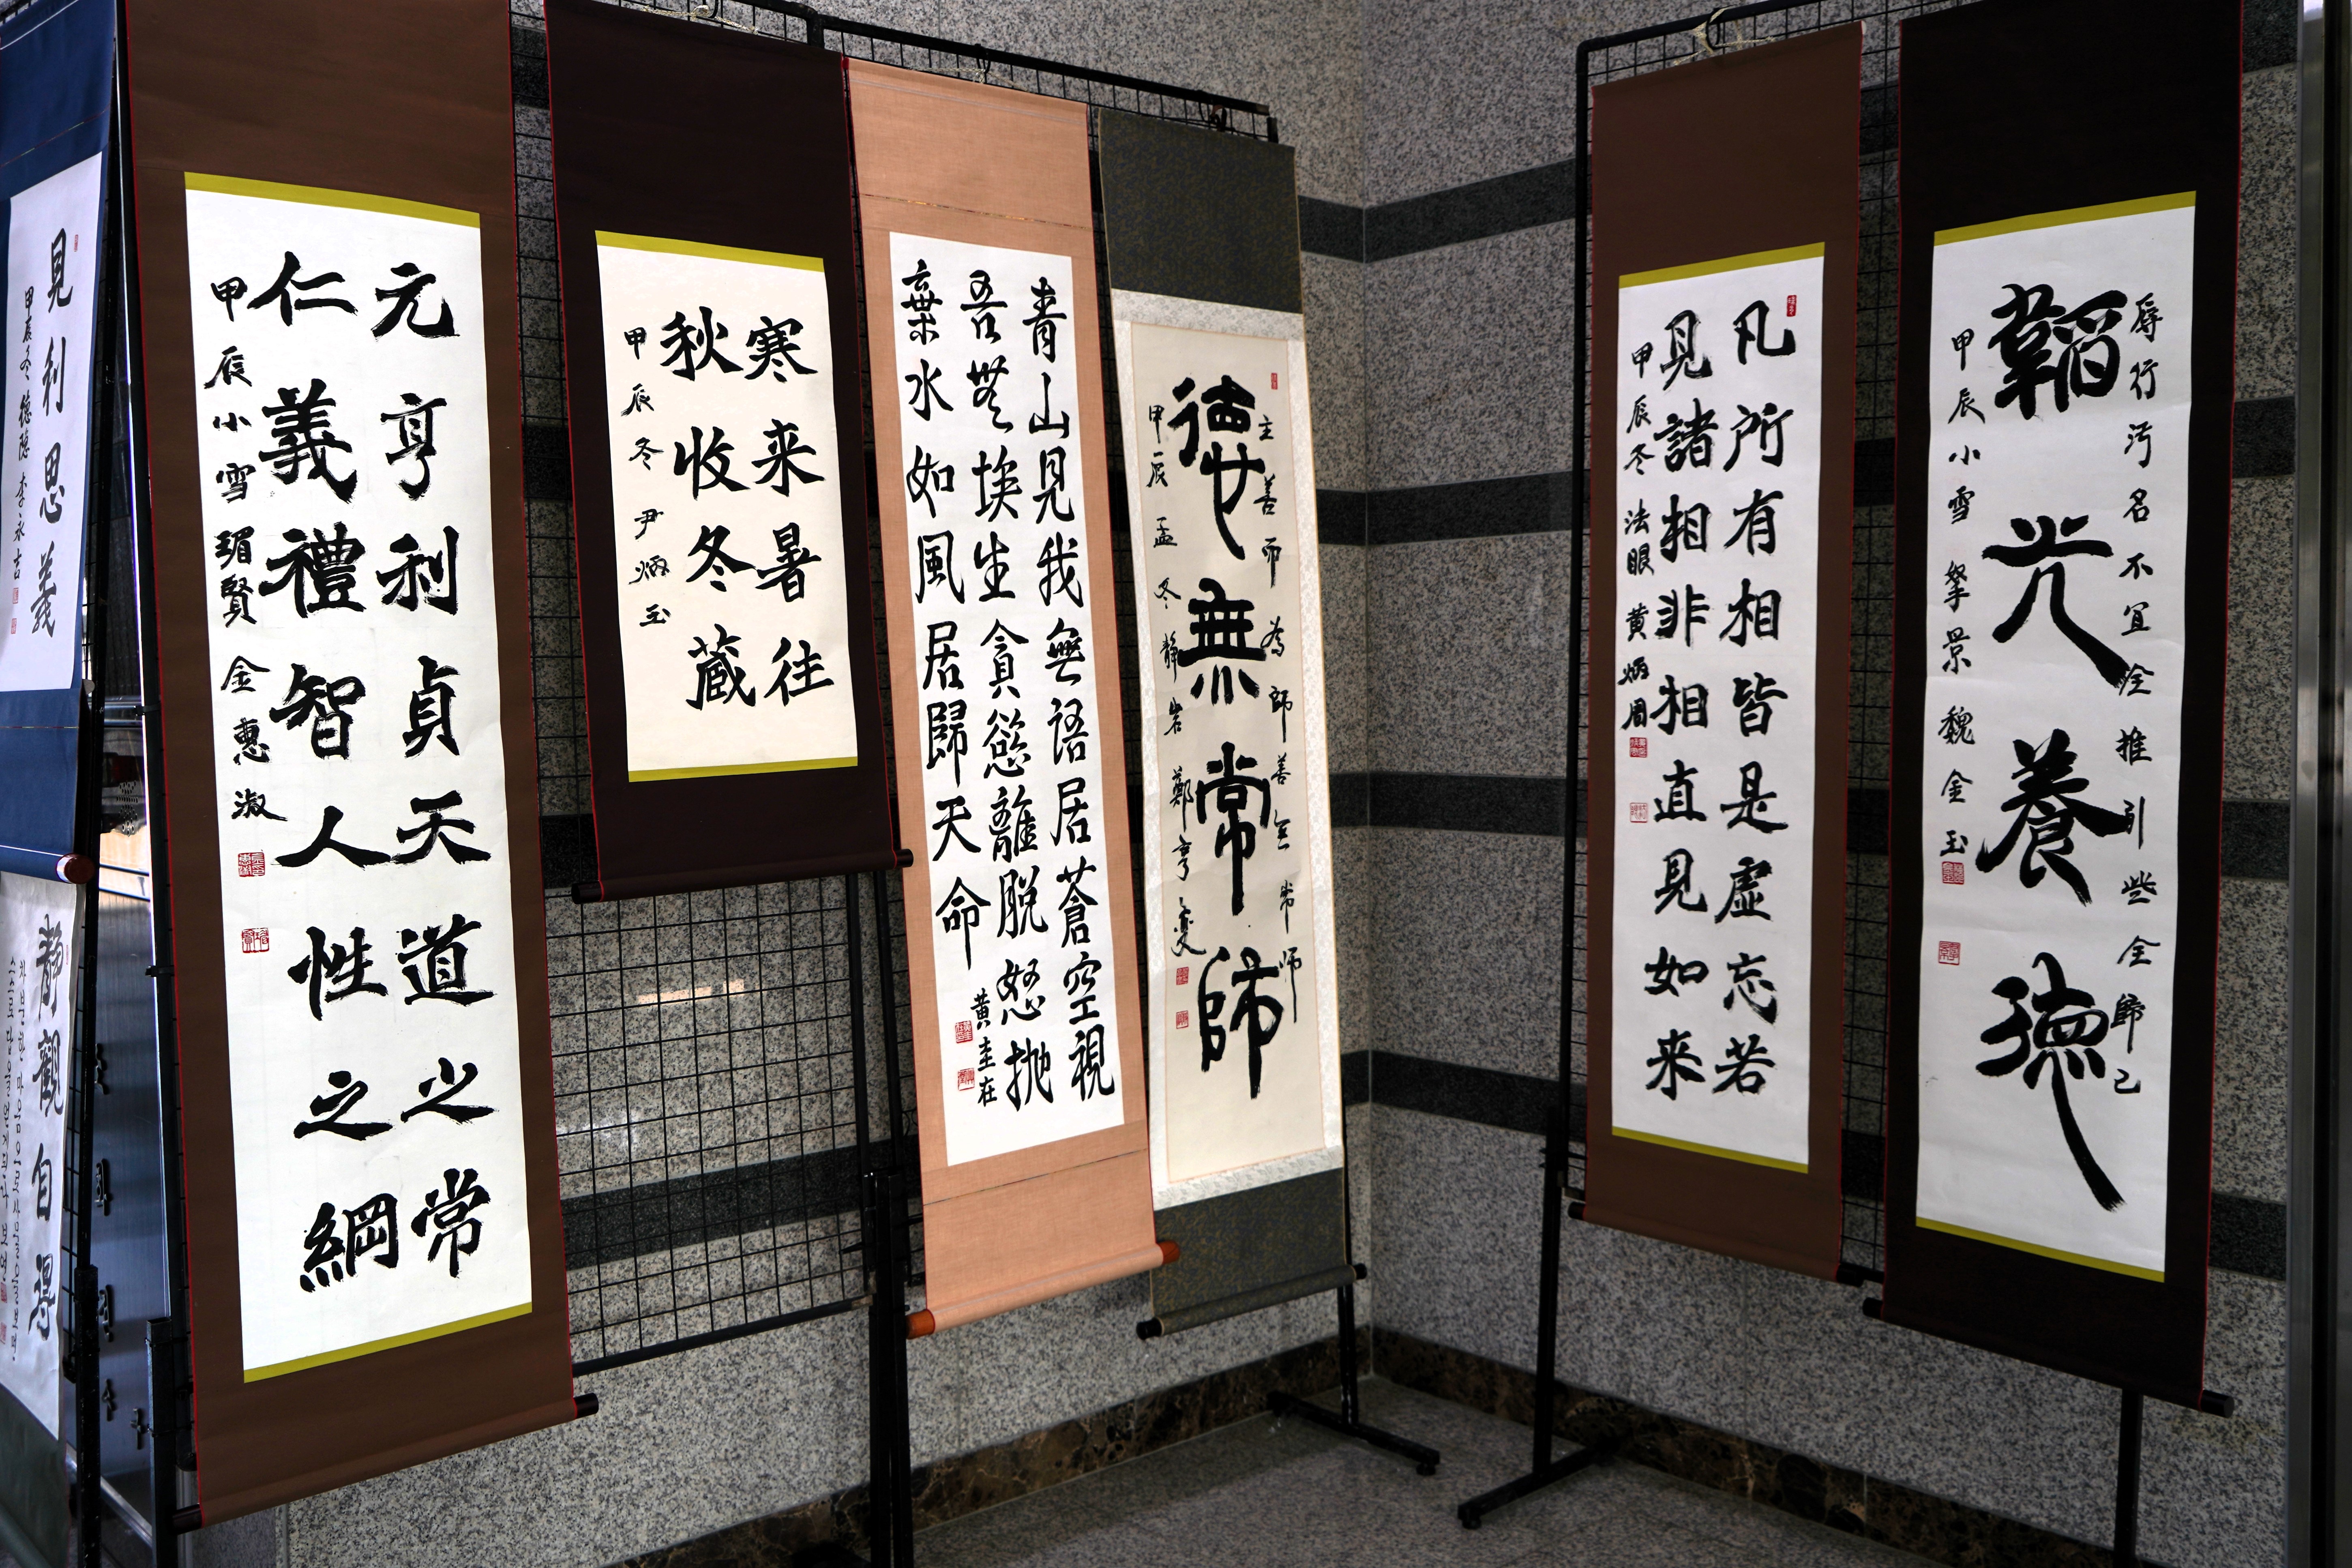 見利思義
甲辰冬 德隱 李永吉
靜觀自得
元亨利貞天道之常
仁義禮智人性之綱
甲辰小雪 瑂賢 金惠淑
寒来暑往
秋收冬蔵
甲辰冬 尹炳玉
青山見我無語居蒼空視
吾無埃生貪慾離脱怒抛
棄水如風居歸天命
黄圭在
主善而為師善無常師
德無常師
甲辰孟冬 静岩 鄭亨燮
凡所有相皆是虚忘若
見諸相非相直見如来
甲辰冬 法眼 黄炳周
辱行汚名不宜全推引些全歸己
韜光養德
甲辰小雪 擎景 魏金玉